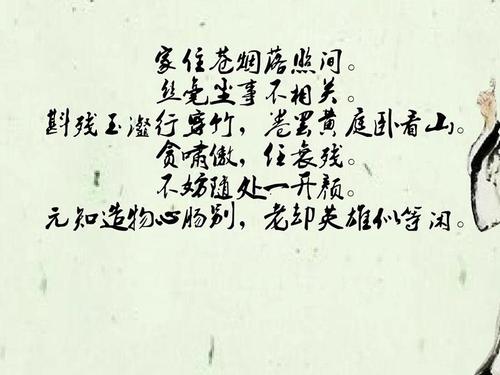 家住苍烟落照间。
丝毫尘事不相关。
斟残玉瀣行穿竹，卷罢黄庭卧看山。
贪啸傲，任衰残。
不妨随处一开颜。
元知造物心肠别，老却英雄似等闲。